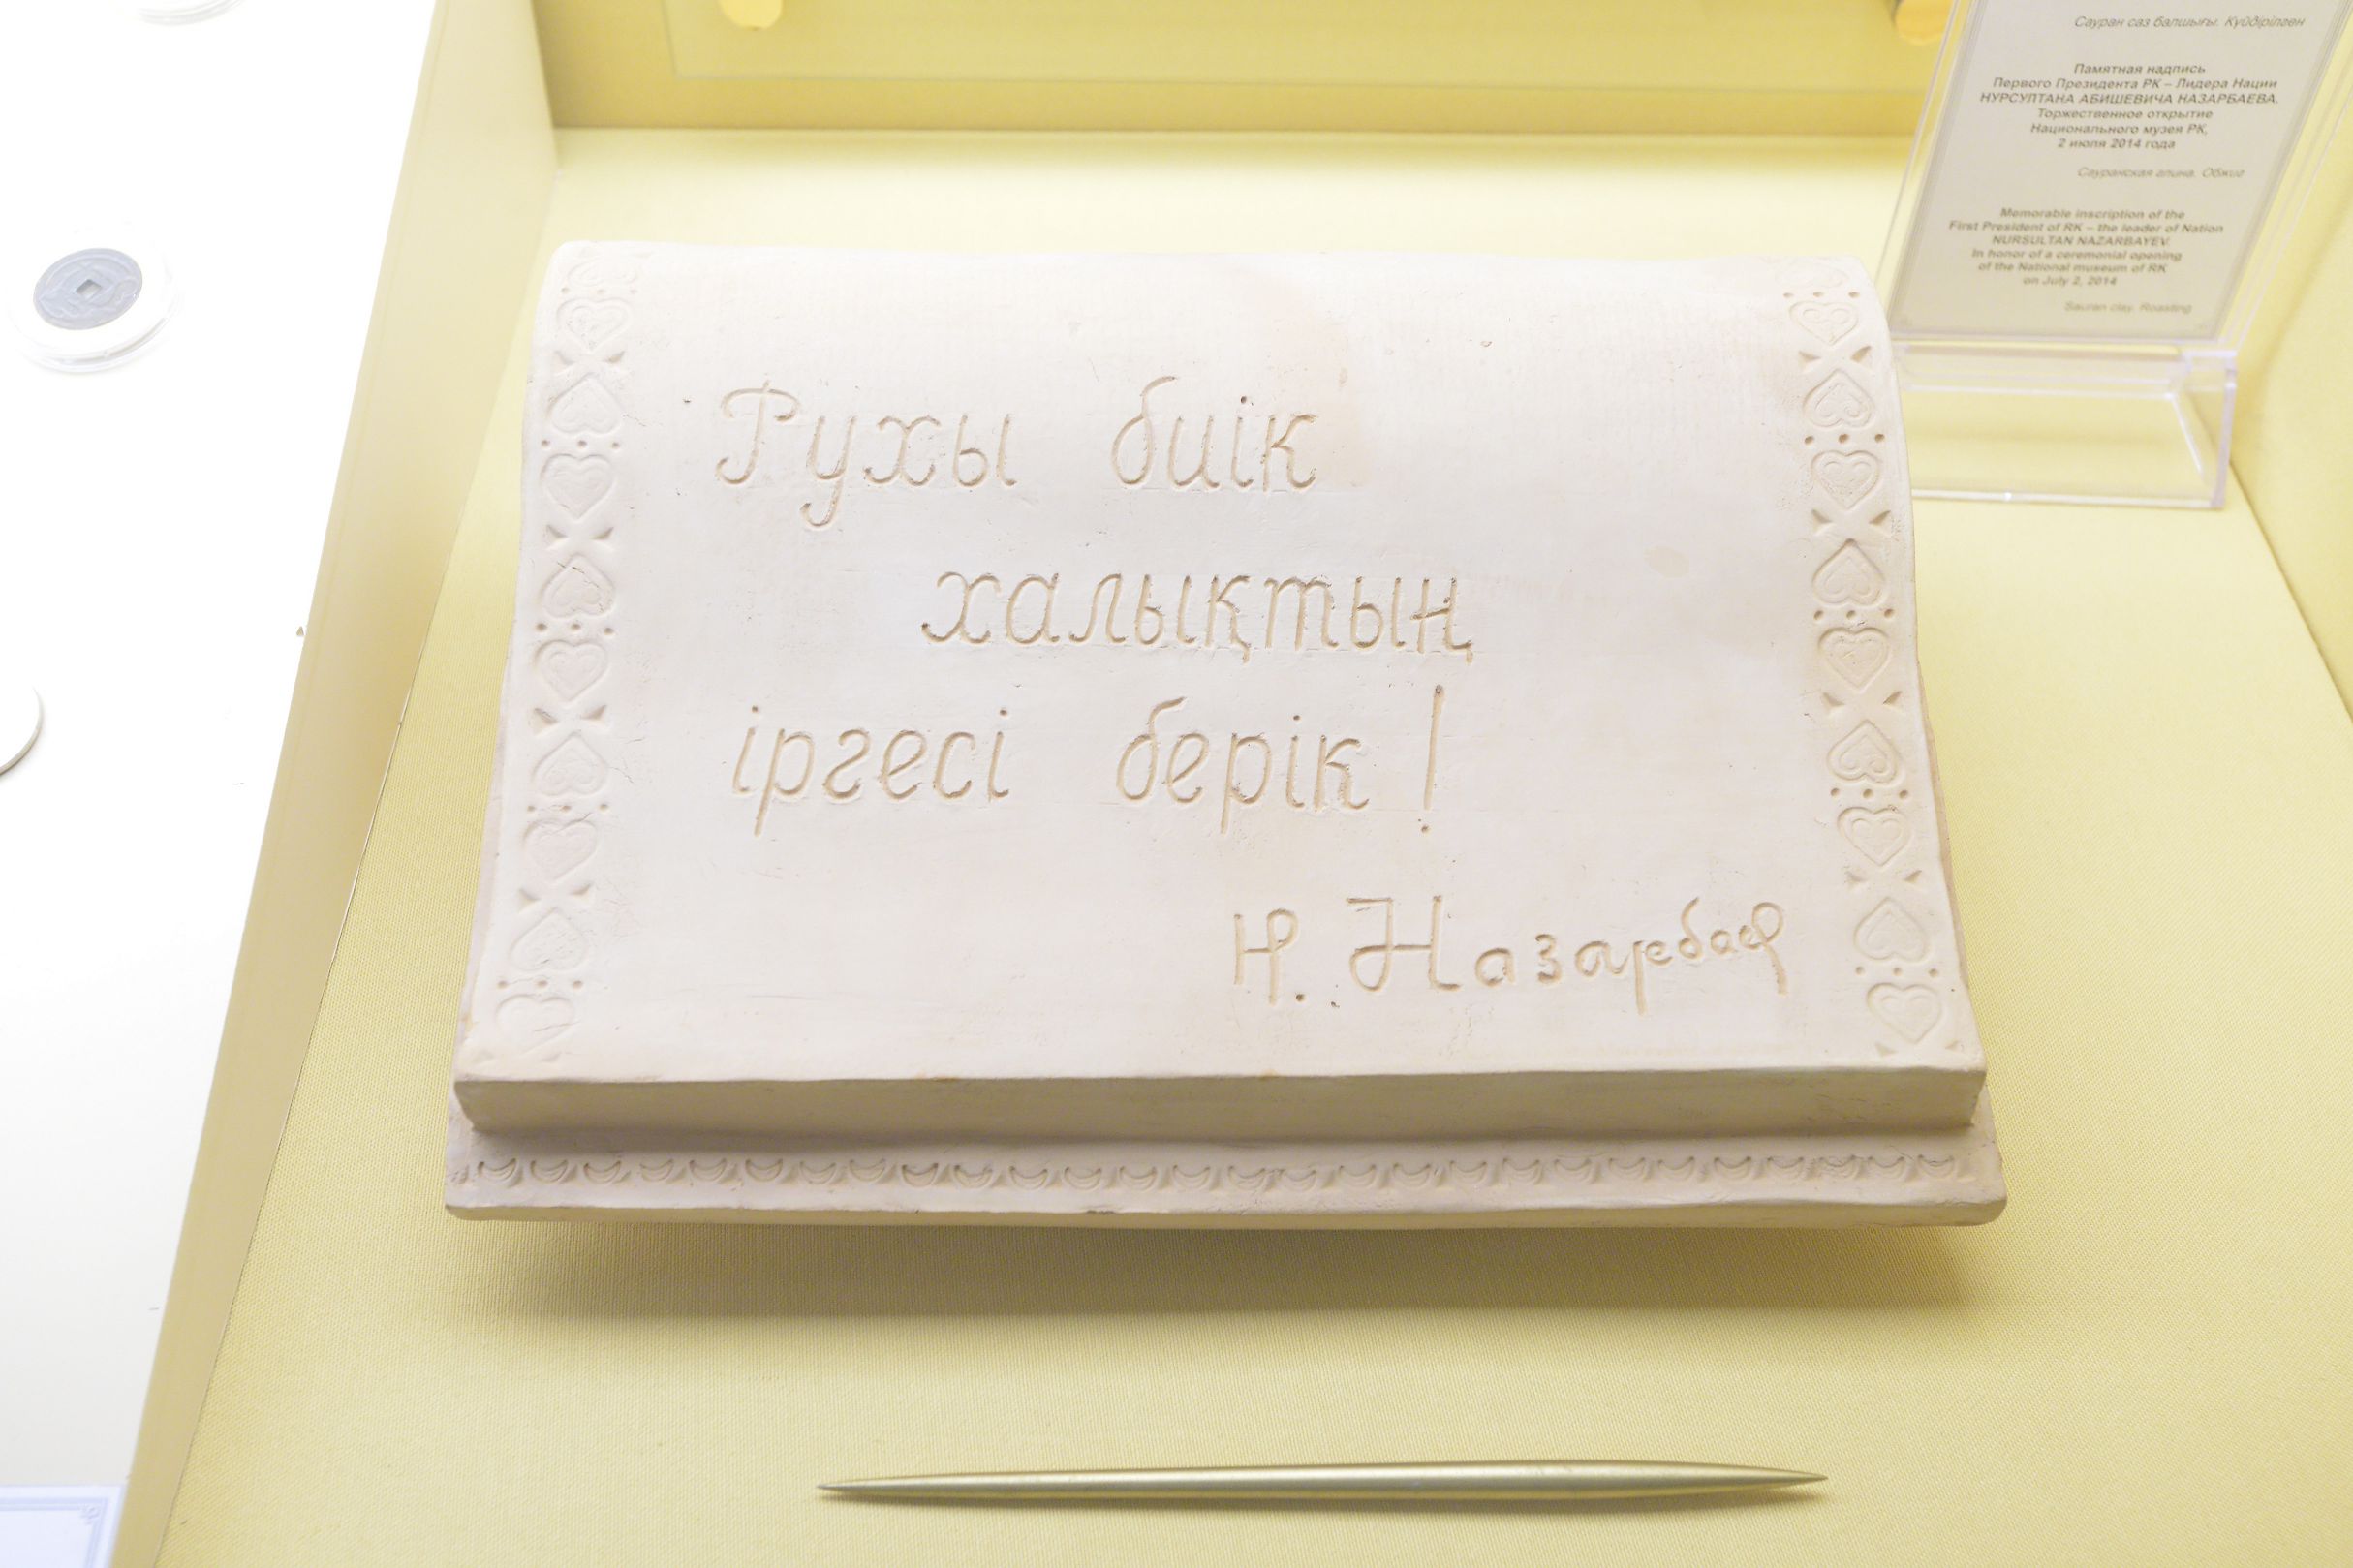 Рухы биік
халықтың
іргесі берік!
Н. Назарбаев
Сауран саз балшығы. Күйдірілген
Памятная надпись
Первого Президента РК – Лидера Нации
НУРСУЛТАНА АБИШЕВИЧА НАЗАРБАЕВА.
Торжественное открытие
Национального музея РК,
2 июля 2014 года
Сауранская глина. Обжиг
Memorable inscription of the
First President of RK – the leader of Nation
NURSULTAN NAZARBAYEV.
In honor of a ceremonial opening
of the National museum of RK
on July 2, 2014
Sauran clay. Roasting